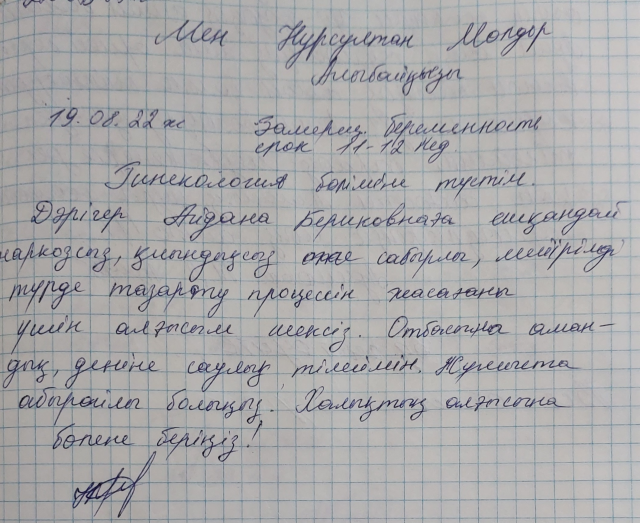 Мен Нурсултан Молдир
Алыбайқызы
19.08.22 ж Замерш. беременность
срок 11-12 нед.
Гинекология бөліміне түстім.
Дәрігер Айдана Бериковнаға ешқандай
наркозсыз, қиындықсыз сабырлы, мейірімді
түрде тазарту процессін жасағаны
үшін алғысым шексіз. Отбасына аман-
дық, деніне саулық тілеймін. Жұмыста
абыройлы болыңыз! Халықтың алғысына
бөлене беріңіз!